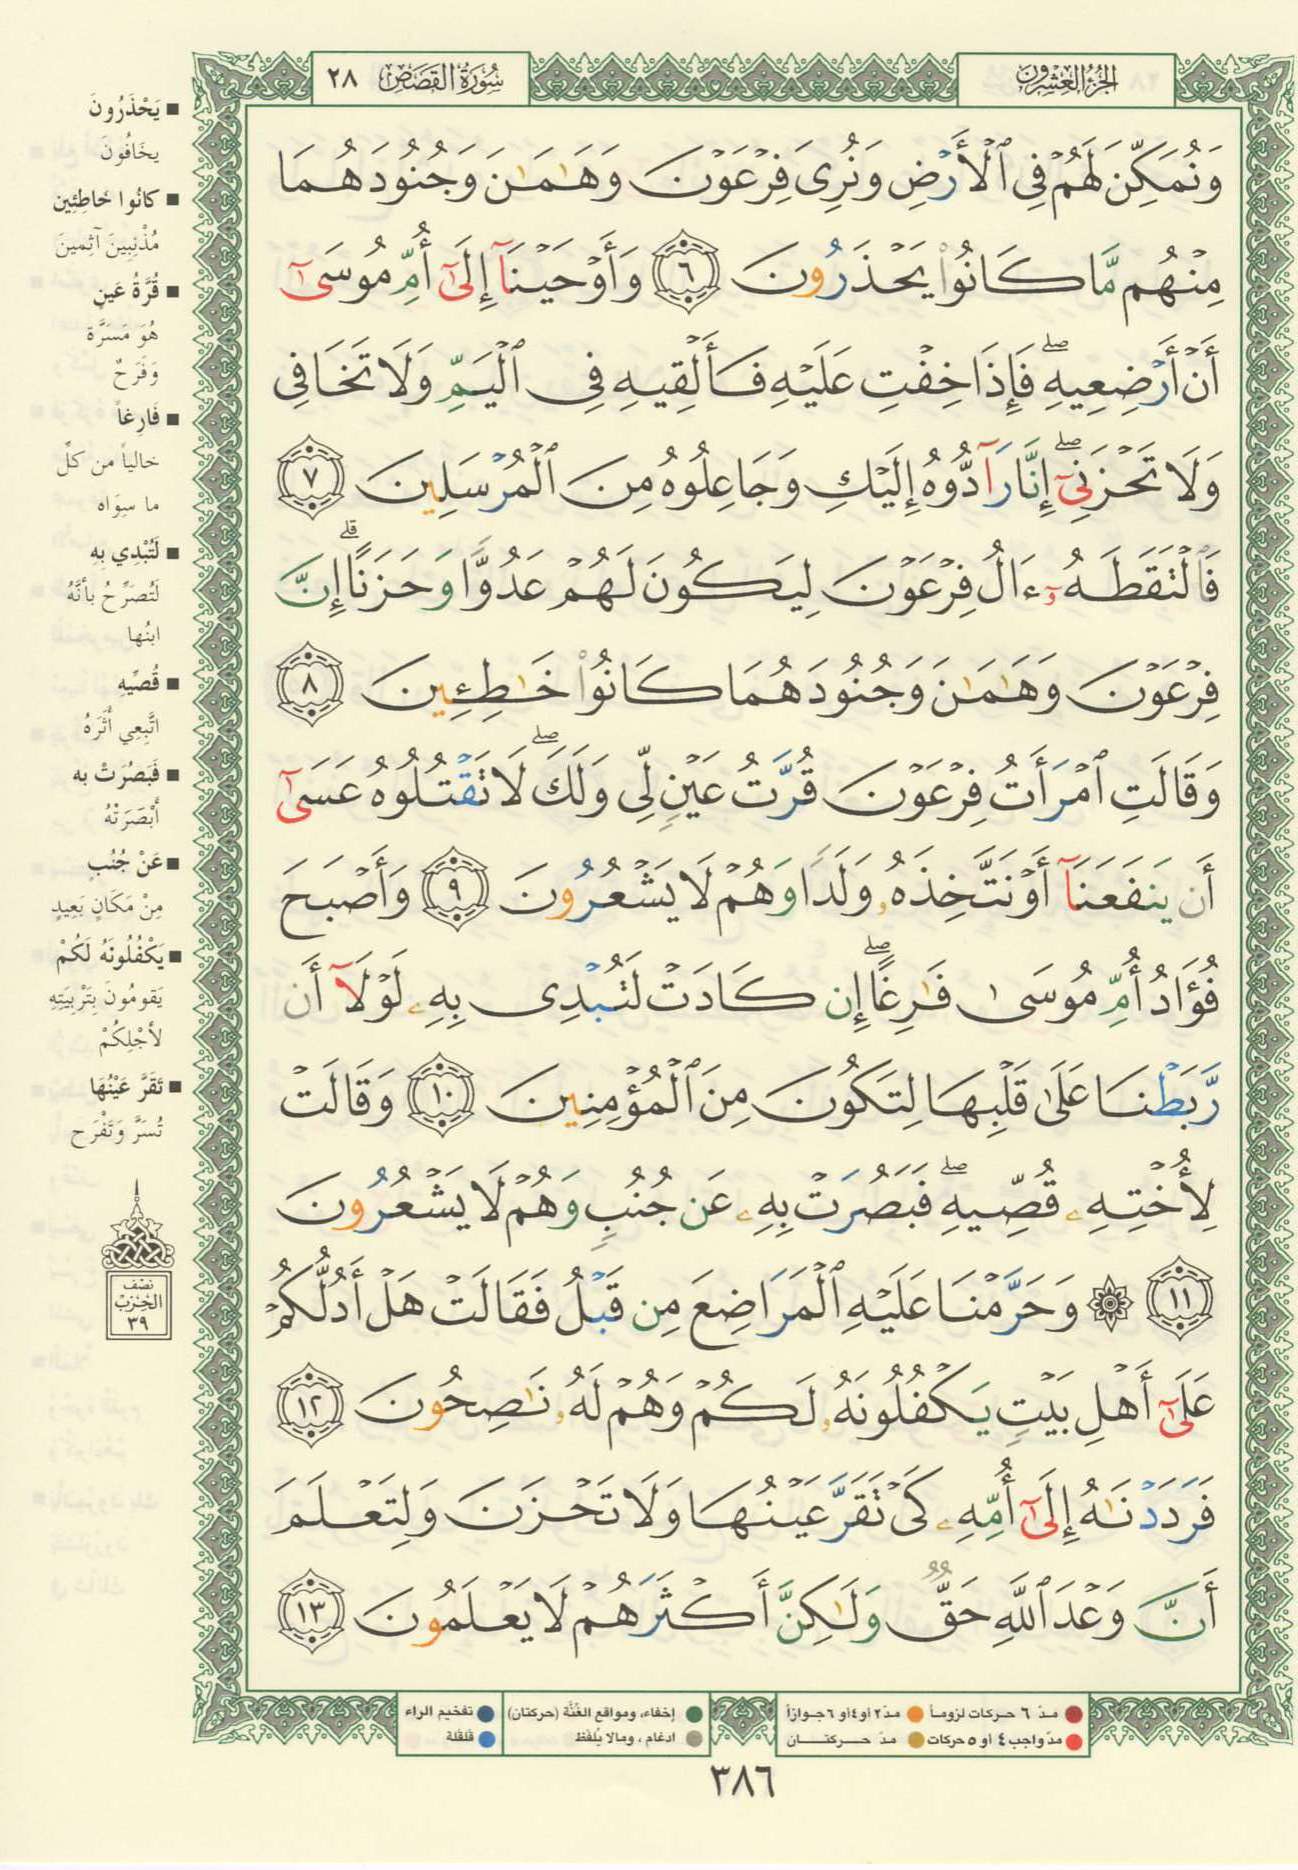 الجزء العشرون
سورة القصص ٢٨
وَنُمَكِّنَ لَهُمْ فِى ٱلْأَرْضِ وَنُرِىَ فِرْعَوْنَ وَهَٰمَٰنَ وَجُنُودَهُمَا
مِنْهُم مَّا كَانُوا۟ يَحْذَرُونَ ٦ وَأَوْحَيْنَآ إِلَىٰٓ أُمِّ مُوسَىٰٓ
أَنْ أَرْضِعِيهِ ۖ فَإِذَا خِفْتِ عَلَيْهِ فَأَلْقِيهِ فِى ٱلْيَمِّ وَلَا تَخَافِى
وَلَا تَحْزَنِىٓ ۖ إِنَّا رَآدُّوهُ إِلَيْكِ وَجَاعِلُوهُ مِنَ ٱلْمُرْسَلِينَ ٧
فَٱلْتَقَطَهُۥٓ ءَالُ فِرْعَوْنَ لِيَكُونَ لَهُمْ عَدُوًّا وَحَزَنًا ۗ إِنَّ
فِرْعَوْنَ وَهَٰمَٰنَ وَجُنُودَهُمَا كَانُوا۟ خَٰطِـِٔينَ ٨
وَقَالَتِ ٱمْرَأَتُ فِرْعَوْنَ قُرَّتُ عَيْنٍ لِّى وَلَكَ ۖ لَا تَقْتُلُوهُ عَسَىٰٓ
أَن يَنفَعَنَآ أَوْ نَتَّخِذَهُۥ وَلَدًا وَهُمْ لَا يَشْعُرُونَ ٩ وَأَصْبَحَ
فُؤَادُ أُمِّ مُوسَىٰ فَٰرِغًا ۖ إِن كَادَتْ لَتُبْدِى بِهِۦ لَوْلَآ أَن
رَّبَطْنَا عَلَىٰ قَلْبِهَا لِتَكُونَ مِنَ ٱلْمُؤْمِنِينَ ١٠ وَقَالَتْ
لِأُخْتِهِۦ قُصِّيهِ ۖ فَبَصُرَتْ بِهِۦ عَن جُنُبٍ وَهُمْ لَا يَشْعُرُونَ
١١ ۞ وَحَرَّمْنَا عَلَيْهِ ٱلْمَرَاضِعَ مِن قَبْلُ فَقَالَتْ هَلْ أَدُلُّكُمْ
عَلَىٰٓ أَهْلِ بَيْتٍ يَكْفُلُونَهُۥ لَكُمْ وَهُمْ لَهُۥ نَٰصِحُونَ ١٢
فَرَدَدْنَٰهُ إِلَىٰٓ أُمِّهِۦ كَىْ تَقَرَّ عَيْنُهَا وَلَا تَحْزَنَ وَلِتَعْلَمَ
أَنَّ وَعْدَ ٱللَّهِ حَقٌّ وَلَٰكِنَّ أَكْثَرَهُمْ لَا يَعْلَمُونَ ١٣
■ يَحْذَرُونَ
يخَافُونَ
■ كانُوا خَاطِئِين
مُذْنِبِينَ آثِمينَ
■ قُرَّةُ عَينٍ
هُوَ مَسَرَّة
وَفَرَحٌ
■ فَارِغاً
خالياً من كلِّ
ما سِوَاه
■ لَتُبْدِي بِه
لَتُصَرِّحُ بأنَّهُ
ابنُها
■ قُصِّيهِ
اتَّبِعِي أَثَرَهُ
■ فَبَصُرَتْ به
أَبْصَرَتْهُ
■ عَنْ جُنُبٍ
مِنْ مَكَانٍ بَعِيدٍ
■ يَكْفُلُونَهُ لَكُمْ
يَقومُونَ بِتَرْبيَتِهِ
لأجْلِكُمْ
■ تَقَرَّ عَيْنُهَا
تُسَرَّ وَتَفْرَح
نصف
الحزب
٣٩
مدّ ٦ حركات لزوماً مدّ ٢ أو ٤ أو ٦ جوازاً
مدّ واجب ٤ أو ٥ حركات مدّ حركتان
إخفاء، ومواقع الغُنَّة (حركتان) تفخيم الراء
ادغام، ومالا يُلفَظ قلقلة
٣٨٦